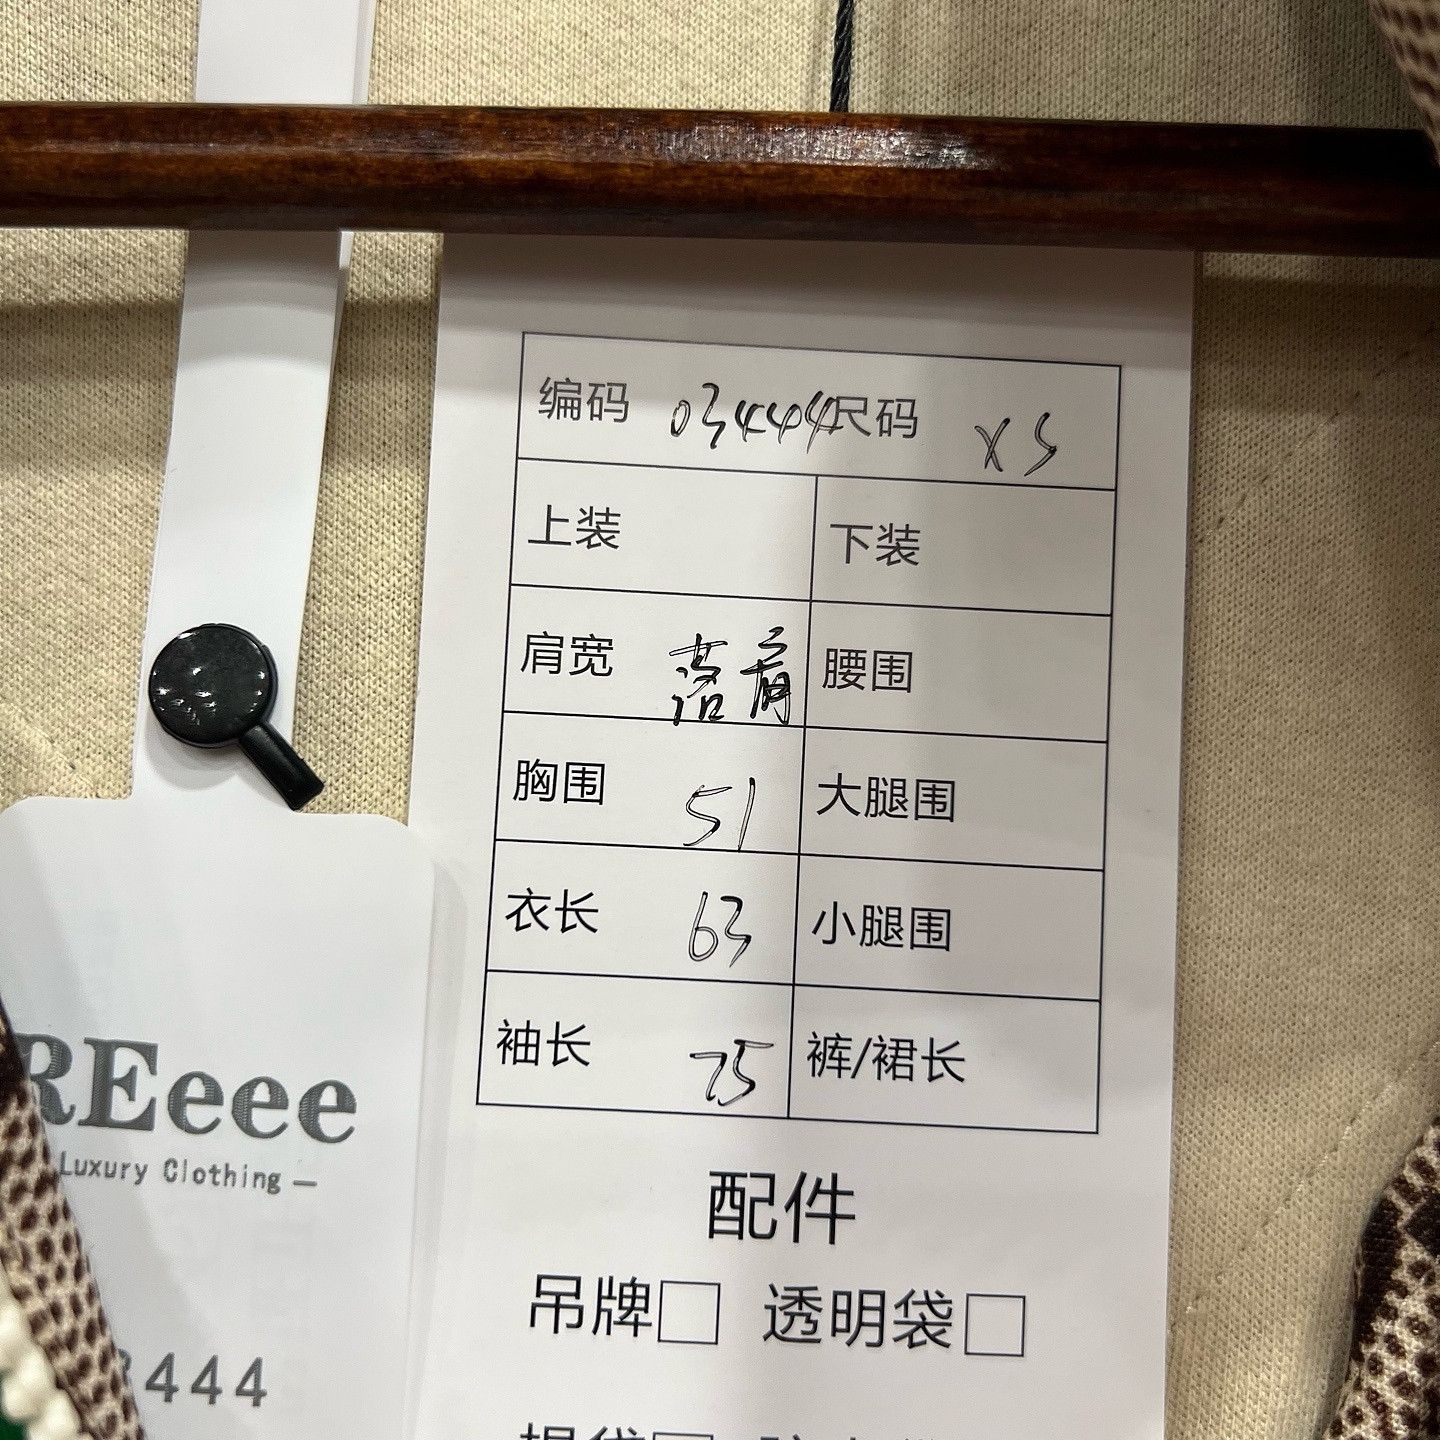 编码 03444 尺码 XS
上装 下装
肩宽 落肩 腰围
胸围 51 大腿围
衣长 63 小腿围
袖长 75 裤/裙长
配件
吊牌□ 透明袋□
REeee
Luxury Clothing —
444